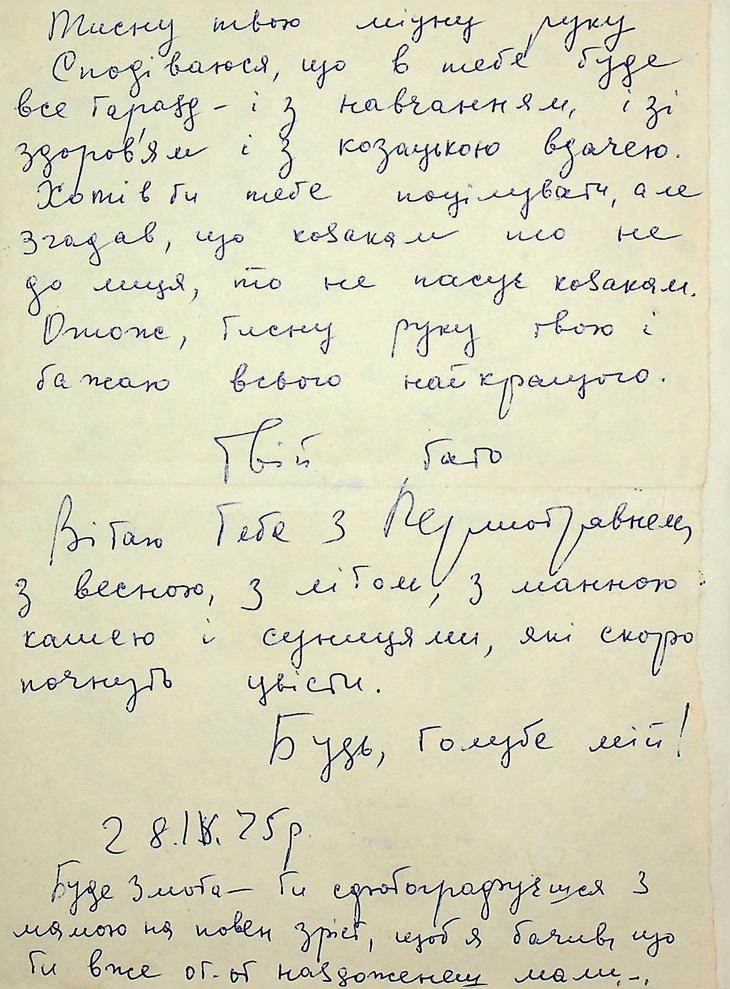 Тисну твою міцну руку
Сподіваюся, що в тебе буде
все гаразд – і з навчанням, і зі
здоров'ям і з козацькою вдачею.
Хотів би тебе поцілувати, але
згадав, що козакам то не
до лиця, то не пасує козакам.
Отож, тисну руку твою і
бажаю всього найкращого.
Твій тато
Вітаю Тебе з Першотравнем,
з весною, з літом, з манною
кашею і суницями, які скоро
почнуть цвісти.
Будь, голубе мій!
28.IV.75р.
Буде змога – ти сфотографуєшся з
мамою на повен зріст, щоб я бачив, що
ти вже от-от наздоженеш маму...